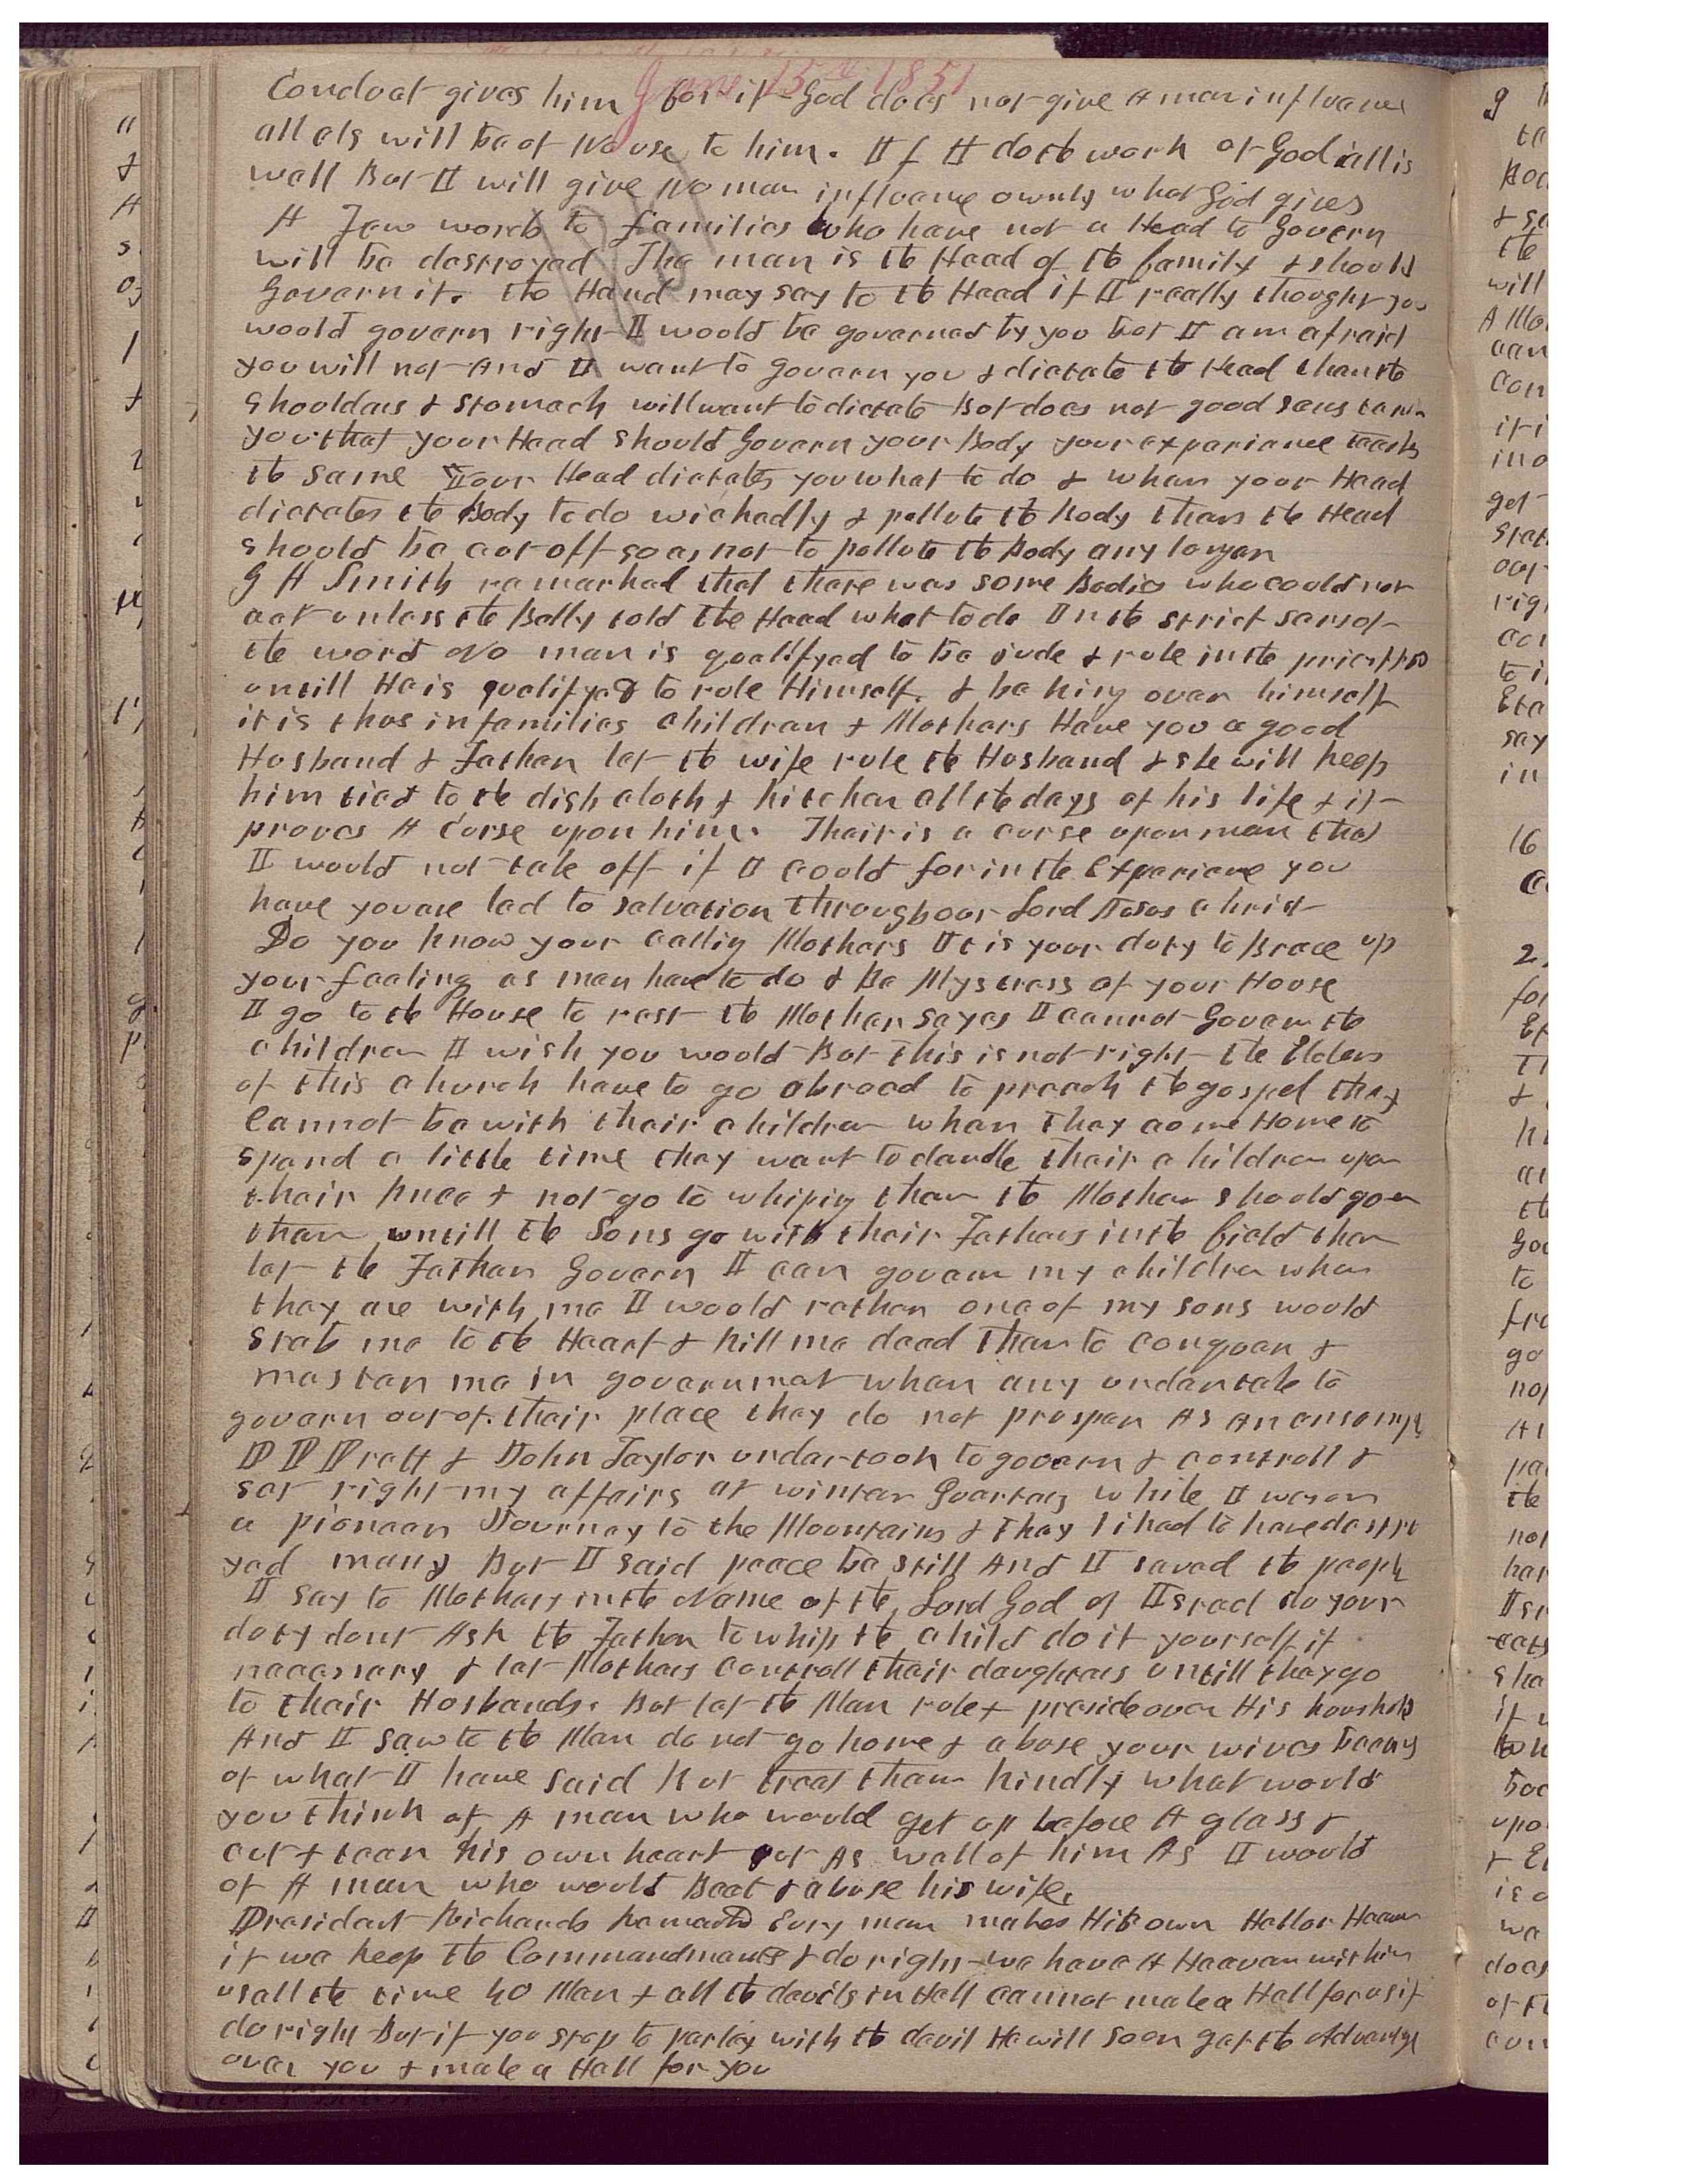 June 15th 1851
Conduct gives him for if God does not give A man influence
all els will be of No use to him. If I do the work of God all is
well But I will give No man influence ownly what God gives
A few words to families who have not a Head to Govern
will be destroyed The man is the Head of the family & should
Govern it. the Hand may say to the Head if I really thought you
would govern right I would be governed by you but I am afraid
you will not And I want to govern you & dictate the Head than the
Shoulders & Stomach will want to dictate But does not good sens
you that your Head should Govern your Body your experience teaches
the same Your Head dictates you what to do & when your Head
dictates the Body to do wickedly & pollute the body then the Head
should be cut off so as not to pollute the Body any longer
G A Smith remarked that there was some Bodies who could not
act unless the Belly told the Head what to do In the strict sens of
the word No man is qualifyed to be jude & rule in the priesthood
untill He is qualifyed to rule Himself. & be king over himself
it is thus in families children & Mothers Have you a good
Husband & Father let the wife rule the Husband & she will keep
him tied to the dish cloth & kitchen all the days of his life & it
proves A Curse upon him. Their is a curse upon man that
I would not take off if I could for in the Experience you
have you are led to salvation through our Lord Jesus Christ
Do you know your calling Mothers It is your duty to Brace up
your feeling as men have to do & Be Mystress of your House
I go to the House to rest the Mother sayes I cannot Govern the
children I wish you would But this is not right the Elders
of this Church have to go abroad to preach the gospel they
Cannot be with their children when they come Home to
spend a little time they want to dandle their children upon
their knee & not go to whiping them the Mother should govern
them untill the Sons go with their Fathers in the field then
let the Father Govern I can govern my children when
they are with me I would rather one of my sons would
Stab me to the Heart & kill me dead than to conquer &
master me in government when any undertake to
govern out of their place they do not prosper As An
P P Pratt & John Taylor undertook to govern & controll &
set right my affairs at winter Quarters while I was on
a pioneer Journey to the Mountains & they liked to have destro
yed many But I said peace be still And I saved the people
I say to Mothers in the Name of the Lord God of Israel do your
duty dont Ask the Father to whip the child do it yourself if
necessary & let Mothers controll their daughters untill they go
to their Husbands. But let the Man rule & preside over His houshold
And I saw to the Man do not go home & abuse your wives
of what I have said But treat them kindly what would
you think of A man who would get up before A glass &
cut & tear his own heart out As well of him As I would
of A man who would Beat & abuse his wife.
President Richards Remarked Evry man makes His own Hell or Heaven
if we keep the Commandments & do right we have A Heaven within
us all the time No Man & all the devils in Hell cannot make a Hell for us if
do right But if you stop to parley with the devil He will soon get the Advantge
over you & make a Hell for you